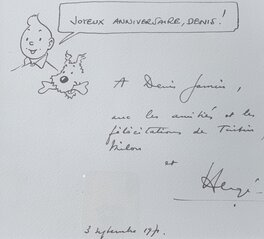 JOYEUX ANNIVERSAIRE, DENIS !
A Denis Jamin,
avec les amitiés et les
félicitations de Tintin,
Milou
et
Hergé
3 septembre 197